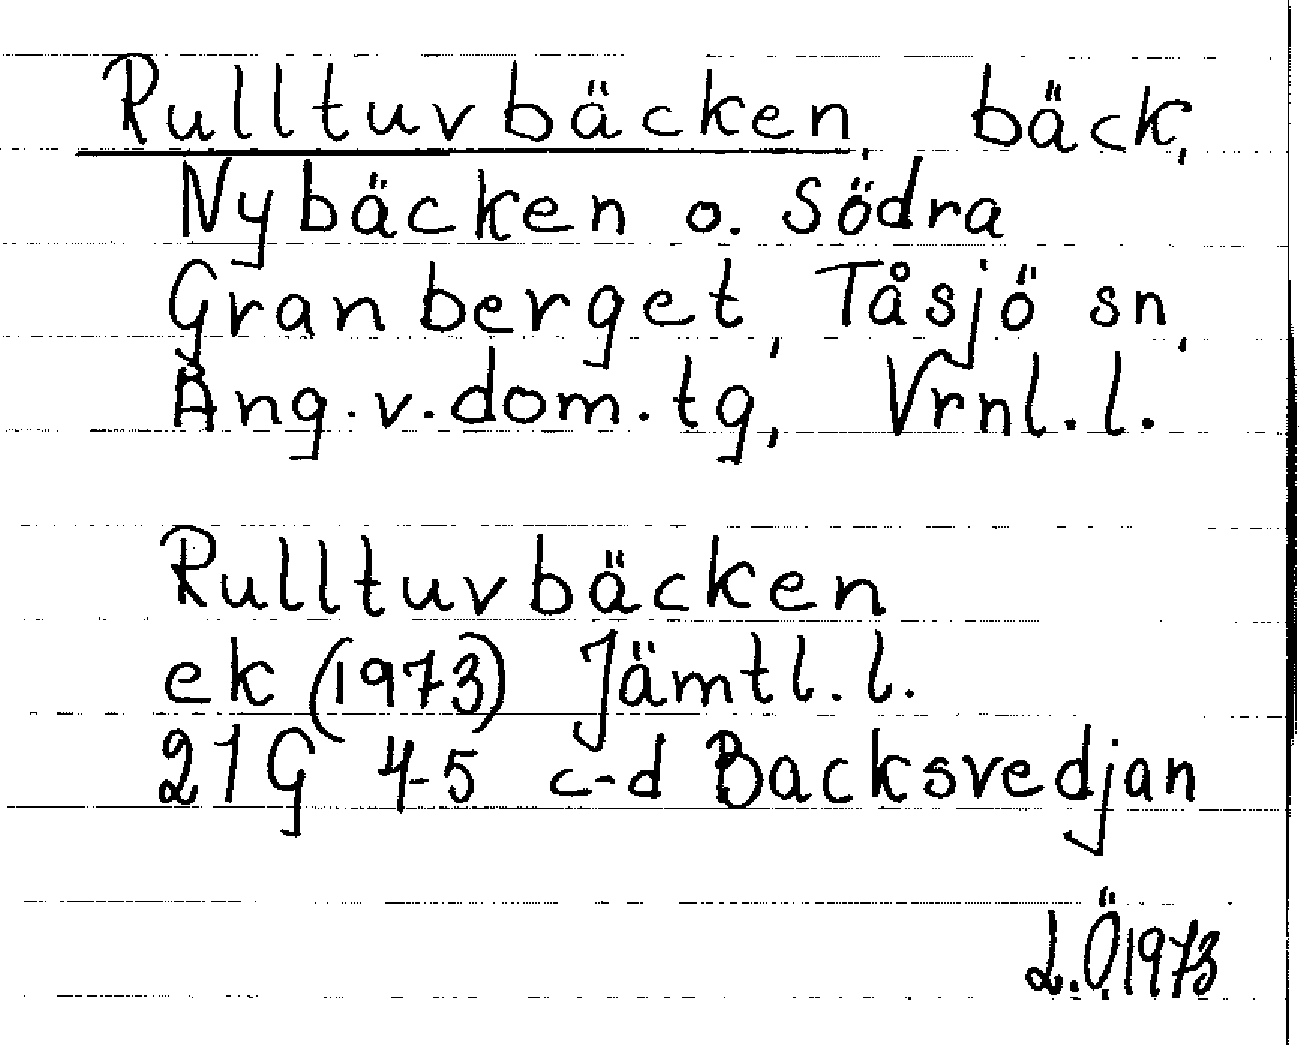 Rulltuvbäcken, bäck,
Nybäcken o. Södra
Granberget, Tåsjö sn,
Ång.v.dom.tg, Vrnl.l.
Rulltuvbäcken
ek (1973) Jämtl.l.
21G 4-5 c-d Backsvedjan
L.Ö.1973